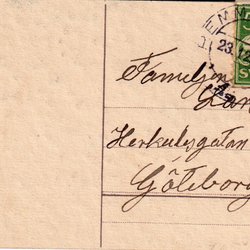 HEMM
23.12
Familjen
Herkulesgatan
Göteborg